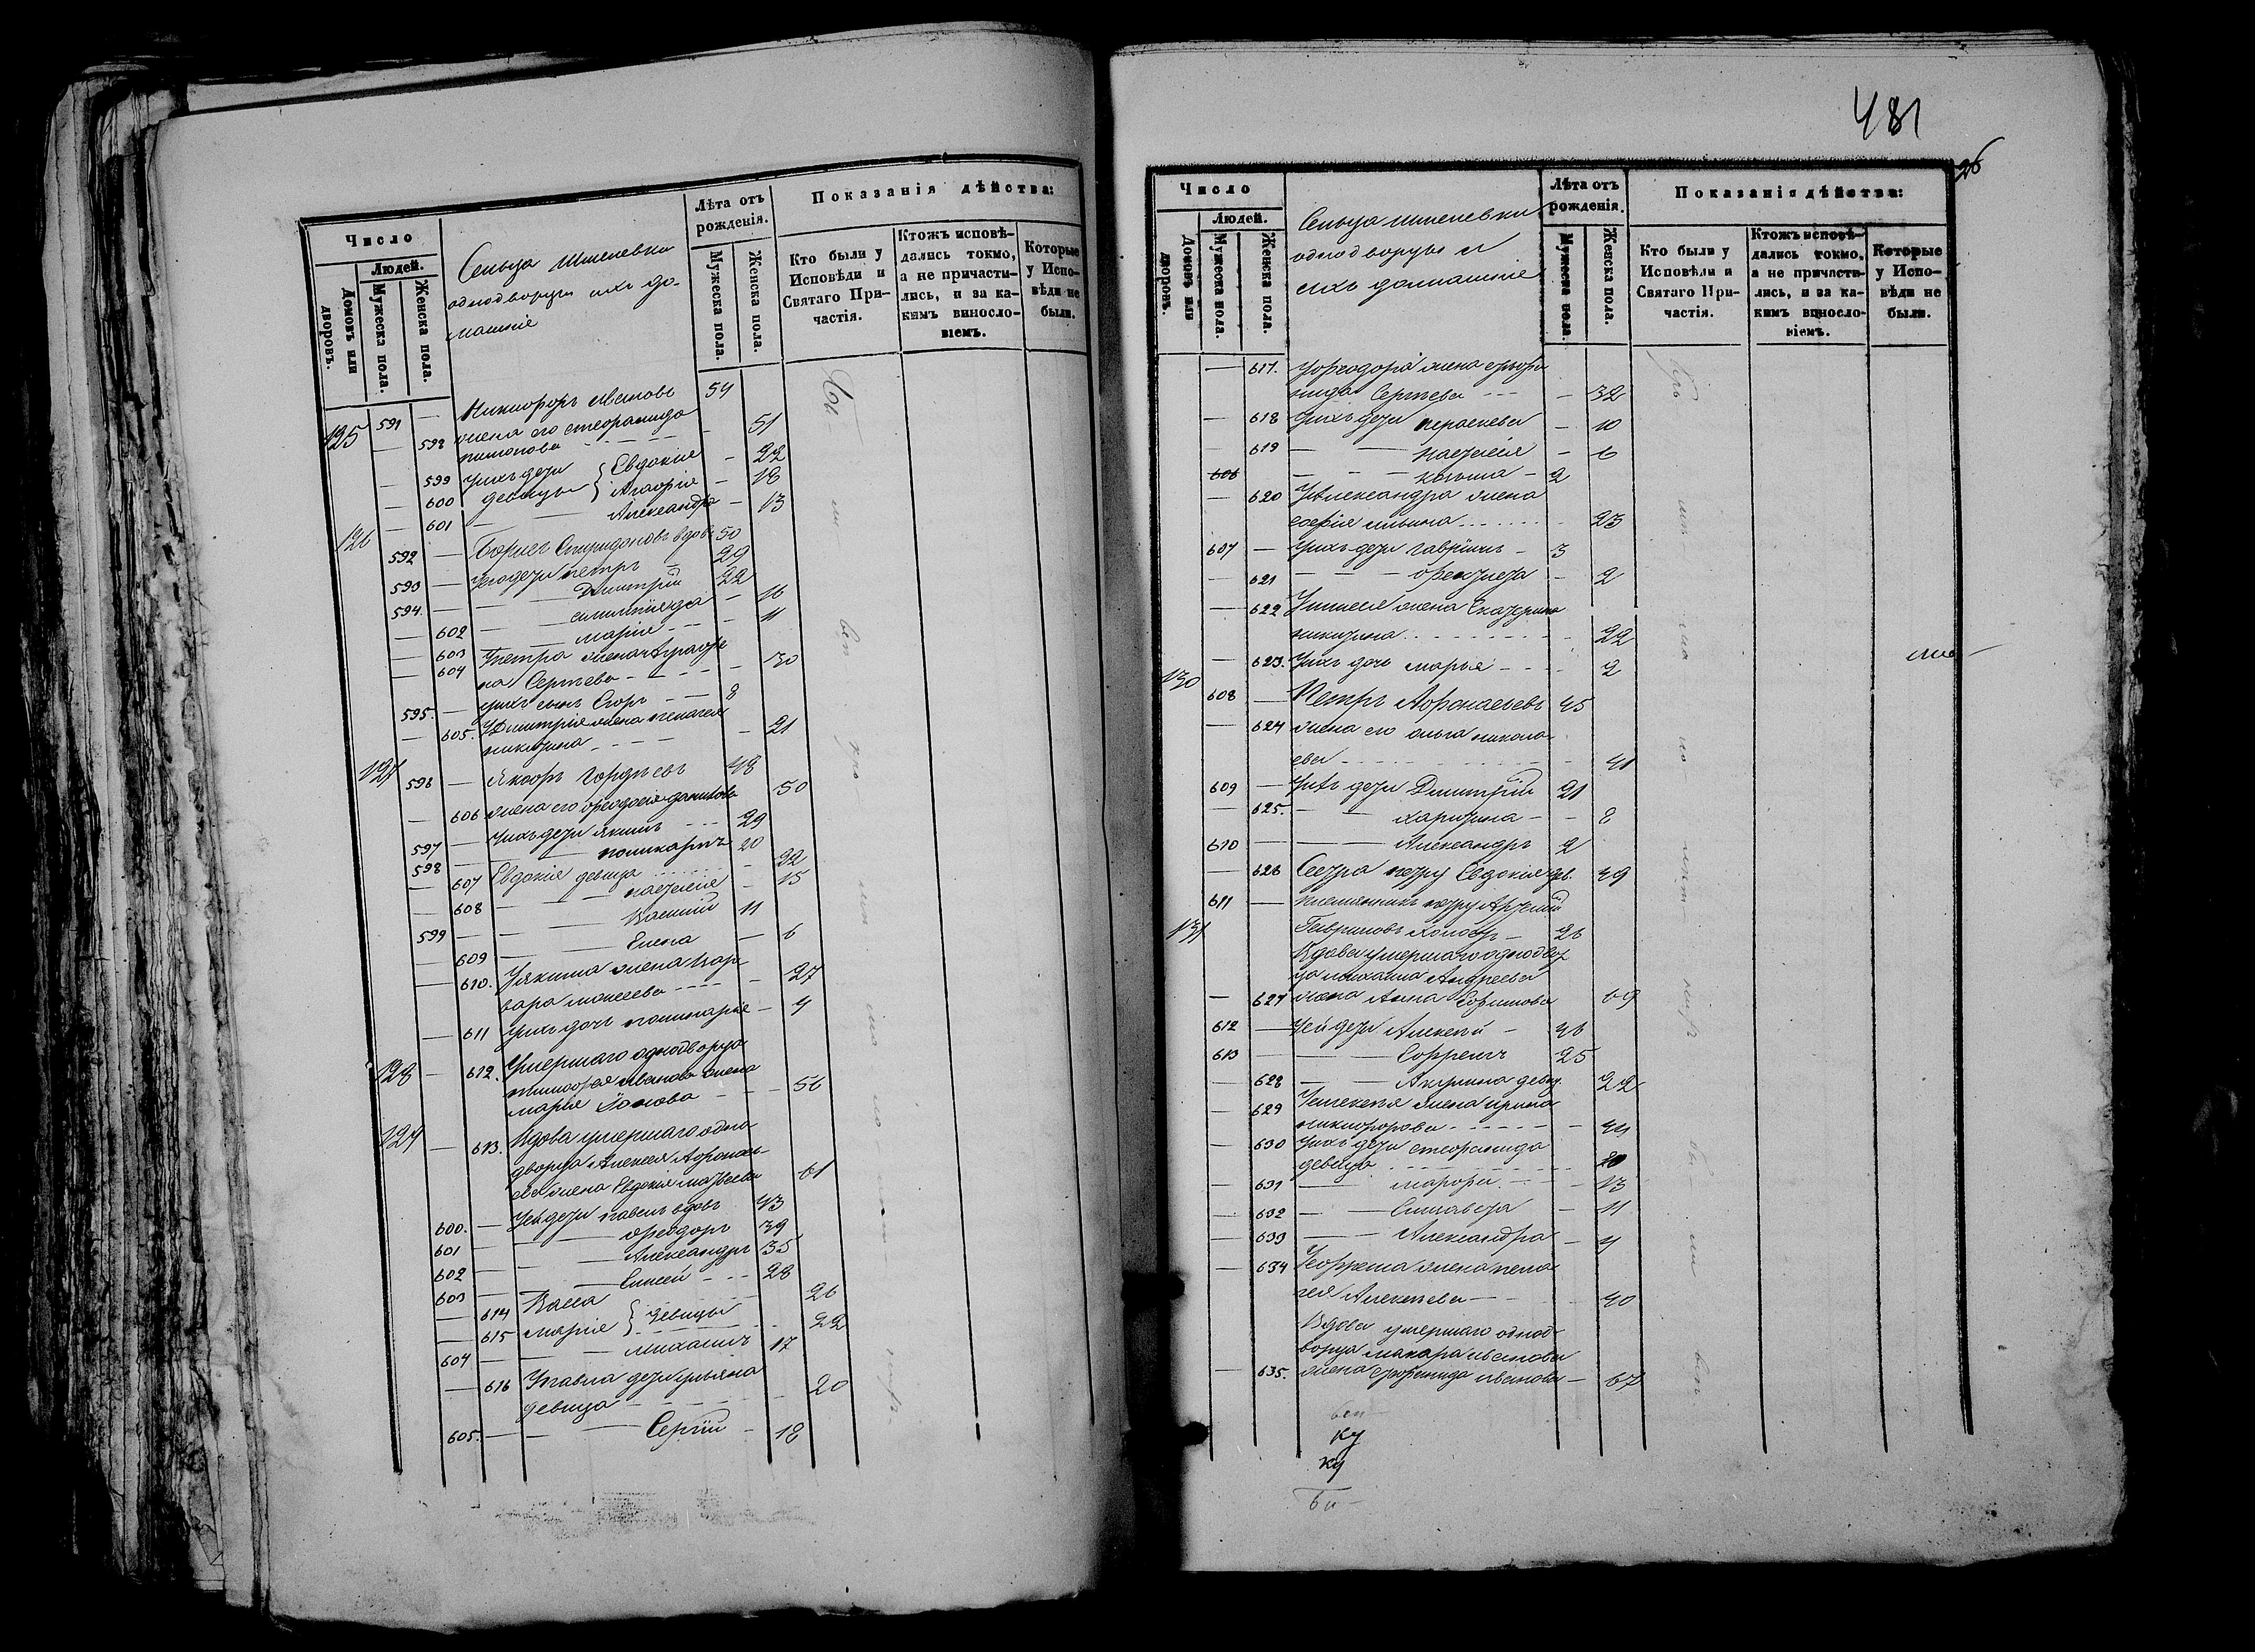 Число
Людей.
Домовъ или дворовъ.
Мужеска пола.
Женска пола.
Сельца Шмелевки
однодворцы ихъ до-
машніе
Лѣта отъ рожденія.
Мужеска пола.
Женска пола.
Показанія дѣйства:
Кто были у Исповѣди и Святаго Причастія.
Ктожъ исповѣдались токмо, а не причастились, и за какимъ винословіемъ.
Которые у Исповѣди не были.
125 591 — Никифоръ Ивановъ 54
— 598 жена его Стефанида
- - - - 51
— 599 Ихъ дети Евдокия - 22
— 600 девицы Агафія - 18
— 601 — Александра - 13
126 592 — Борисъ Спиридоновъ вдов 50
593 — Его дети Петръ - 29
594. — Димитрій 22
— 602 — - 16
— 603 — Марія - - - 11
— 604 Петра жена Аграфе
на Сергѣева - - - 30
595. — Ихъ сынъ Егоръ - - 8
— 605. Димитрія жена Пелагея
Никитина - - - - 21
127 596 — Яковъ Гордѣевъ 48
— 606 жена его Феодосія 50
597 — Ихъ дети Якимъ - - - 29
598 — Поликарпъ 20
— 607 Евдокія девица - - 22
— 608 — Настасія - 15
599 — — Василій 11
— 609 — Елена — 6
— 610. Якима жена Вар
вара Моисеева - - - - 27
— 611 Ихъ дочь - 4
128 — 612. Умершаго однодворца
Тимофея Иванова жена
Марія - - - 56
129 — 613. Вдова умершаго одно
дворца Алексея Афонась-
ева жена Евдокія Матвеева 61
600. — Ея дети Павелъ вдовъ 43
601 — Феодоръ 39
602 — Александръ 35
603 — Елисей - - - 28
— 614 Васса 26
— 615 Марія девицы 22
604 — — Михаилъ 17
— 616 Павла дети Ульяна
девица - - - - 20
605. — — Сергій - 18
481
26
Число
Людей.
Домовъ или дворовъ.
Мужеска пола.
Женска пола.
Сельца Шмелевки
однодворцы и
ихъ домашніе
Лѣта отъ рожденія.
Мужеска пола.
Женска пола.
Показанія дѣйства:
Кто были у Исповѣди и Святаго Причастія.
Ктожъ исповѣдались токмо, а не причастились, и за какимъ винословіемъ.
Которые у Исповѣди не были.
— 617. Уфеодора жена
Сергѣева - - - — 32
— 618 Ихъ дети Параскева — 10
— 619 — Настасія - 6
606 — — — Козьма - 2
— 620 Уалександра жена
Софія Ильина - - - - - 23
607 — Ихъ дети Гавріилъ - 3
— 621 — - 2
— 622 жена Екатерина
Никитина - - - - - 22
— 623. Ихъ дочь Марья - - - 2
130 608 — Петръ Афонасьевъ 45
— 624 жена его Ольга Никола-
ева - - - - - 41
609 — Ихъ дети Димитрій 21
— 625. — Харитина - - 8
610 — — Александръ 2
— 626 Сестра Петру Евдокія дев. 49
611 — племянникъ Петру Артемій
131 Гавриловъ холостъ — 26
Вдова умершаго одноdвор
ца Михаила Андреева
— 627 жена Анна Ефимова 69
612 — Ея дети Алексѣй - 46
613 — — Ефремъ 25
— 628 — — Акулина девиц. 22
— 629 Уалексѣя жена Ирина
Никифорова - - - - - 44
— 630 Ихъ дети Стефанида
девица - - - - - 20
— 631 — Марфа - - - 13
— 632 — — Елисавета - 11
— 633 — Александра - 4
— 634 Уефрема жена Пела
гея Алексѣева — 40
Вдова умершаго однод
ворца Макара Иванова
— 635. жена Иванова — 67
ку
ку